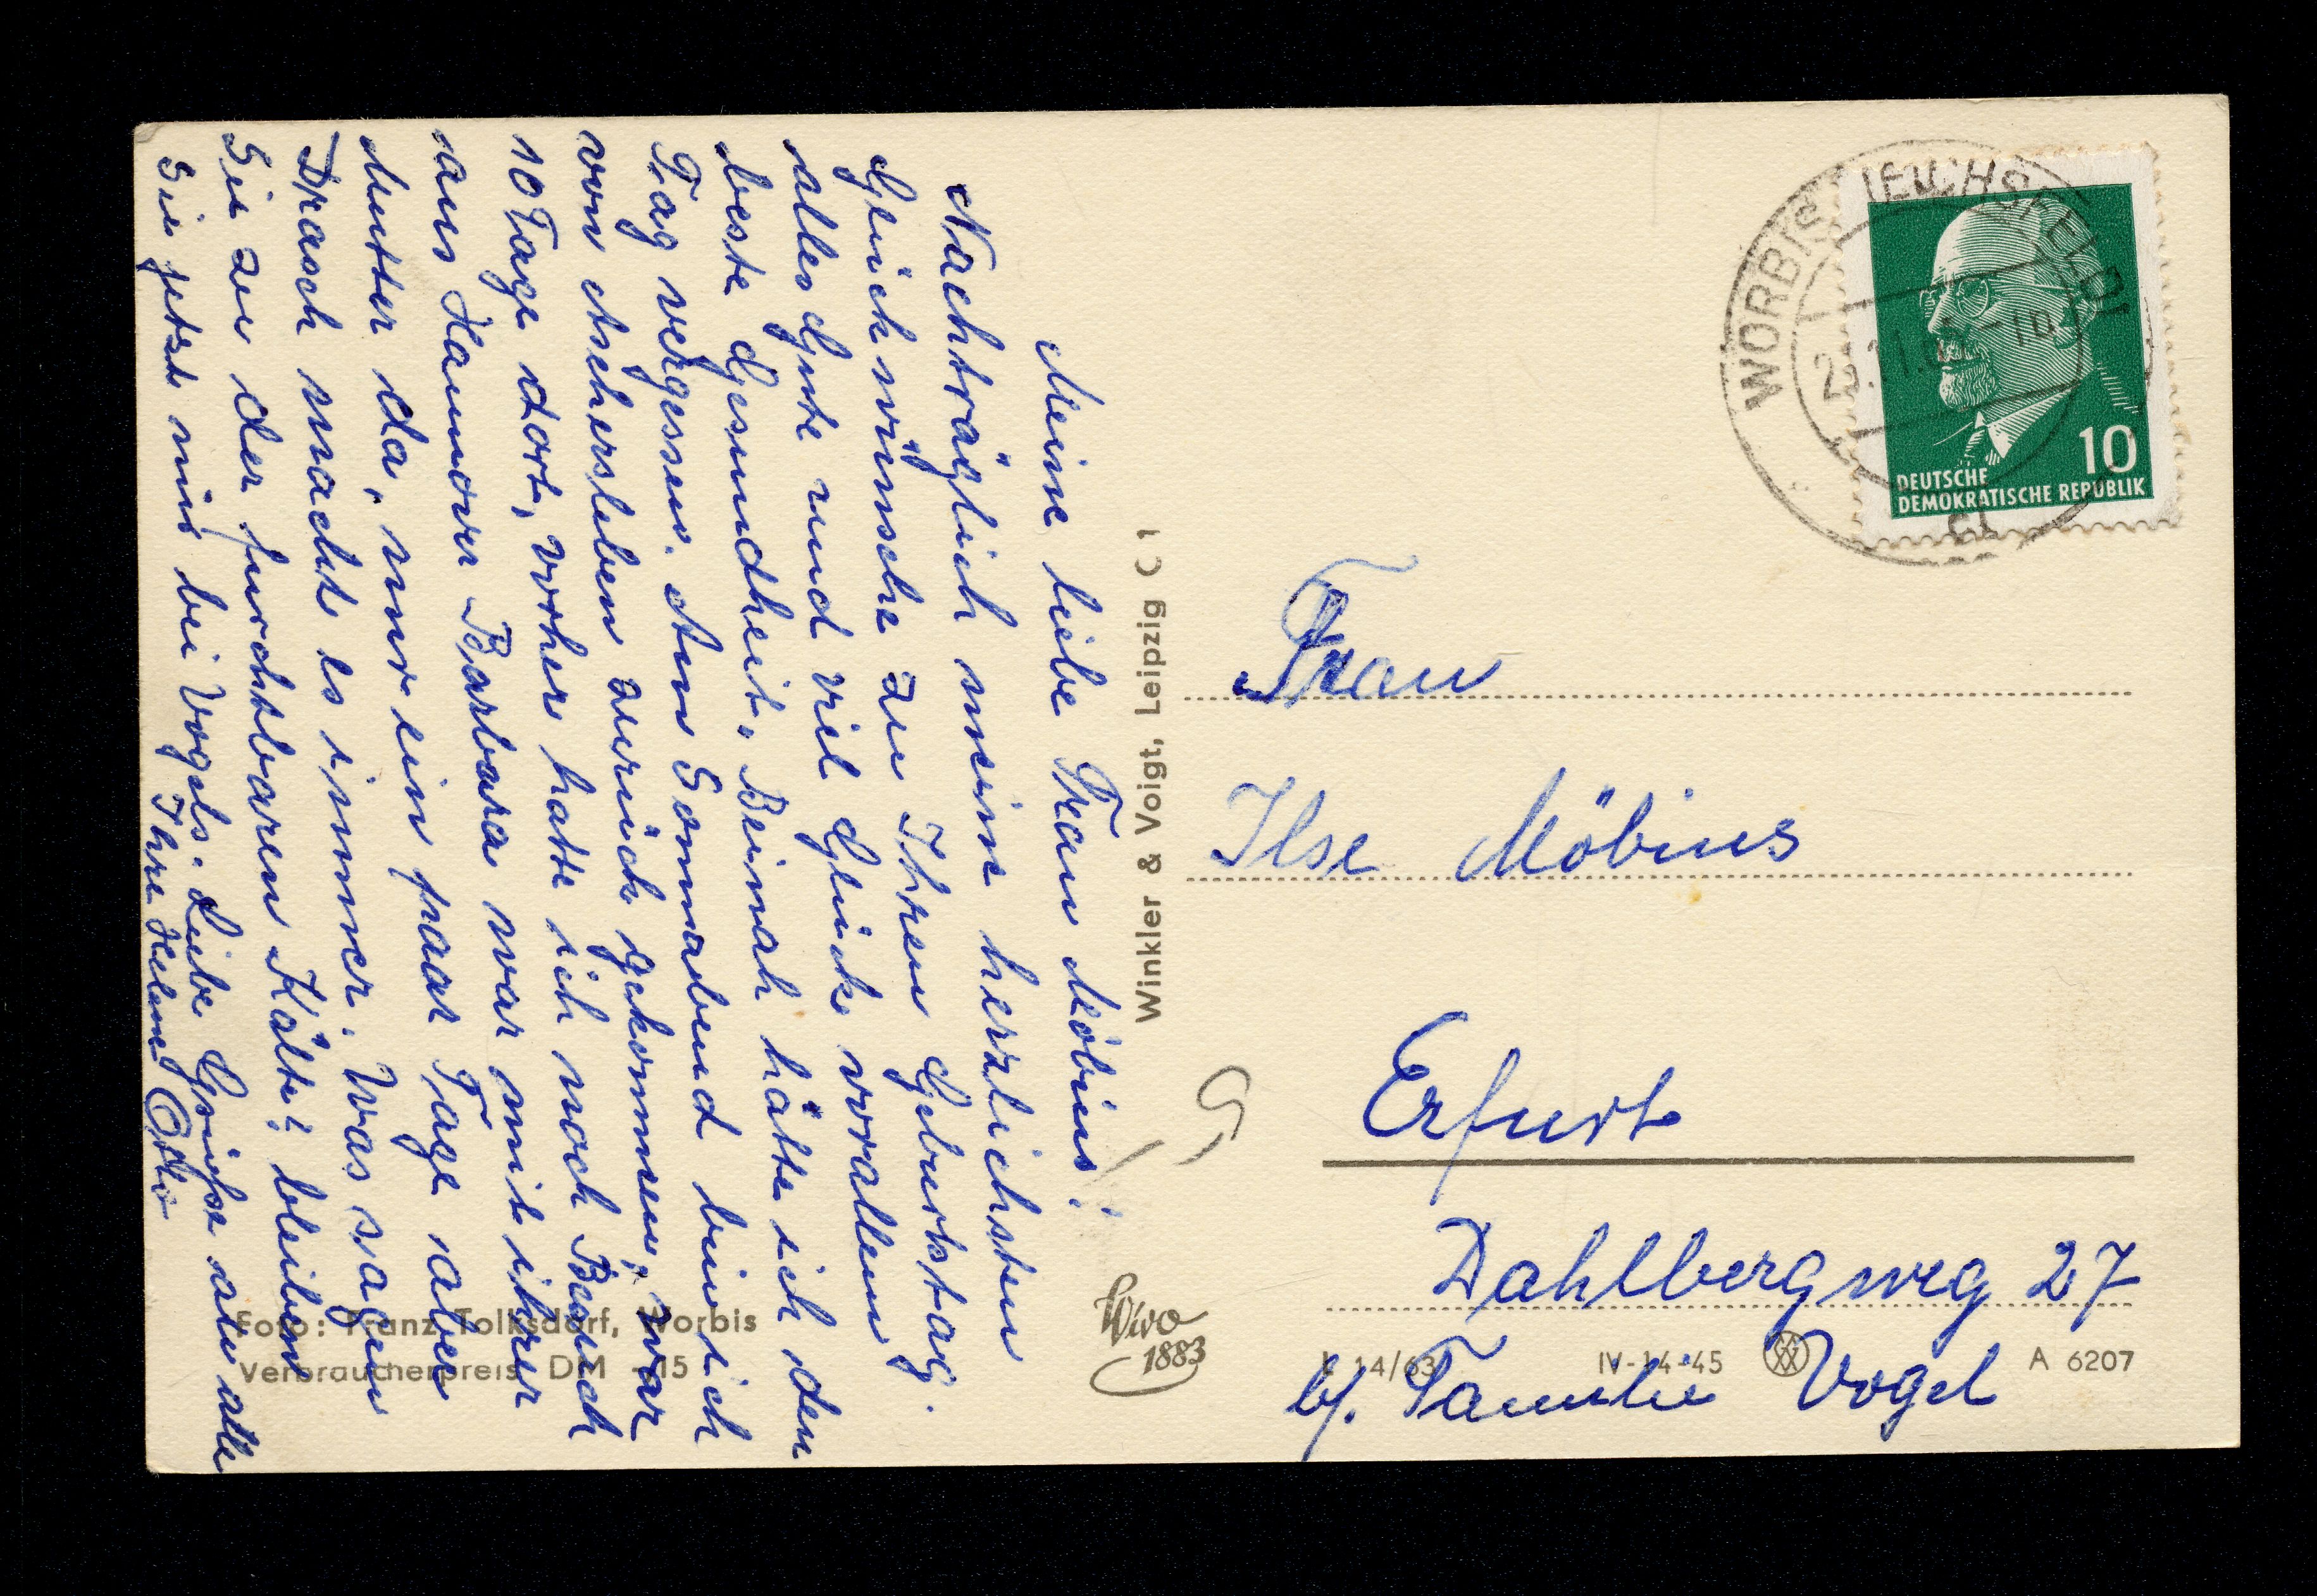 Meine liebe Frau Möbius!
Nachträglich meine herzlichsten
Glückwünsche zu Ihrem Geburtstag.
alles Gute und viel Glück vorallem
beste Gesundheit. Beinah hätte ich den
Tag vergessen. Am Sonnabend bin ich
von Aschersleben zurück gekommen, war
10 Tage dort, vorher hatte ich noch Besuch
aus Hannover Barbara war mit ihrer
Mutter da, nur ein paar Tage aber
Drasch macht es immer. Was sagen
Sie zu der furchtbaren Kälte? bleiben
Sie jetzt nun bei Vogels. Liebe Grüße an alle
Ihre Helene
Foto: Franz Tolksdorf, Worbis
Verbraucherpreis DM -,15
Winkler & Voigt, Leipzig C 1
Wivo
1883
WORBIS (EICHSFELD)
10
DEUTSCHE
DEMOKRATISCHE REPUBLIK
Frau
Ilse Möbius
Erfurt
Dahlbergweg 27
14/63 IV-14-45 A 6207
b/. Familie Vogel